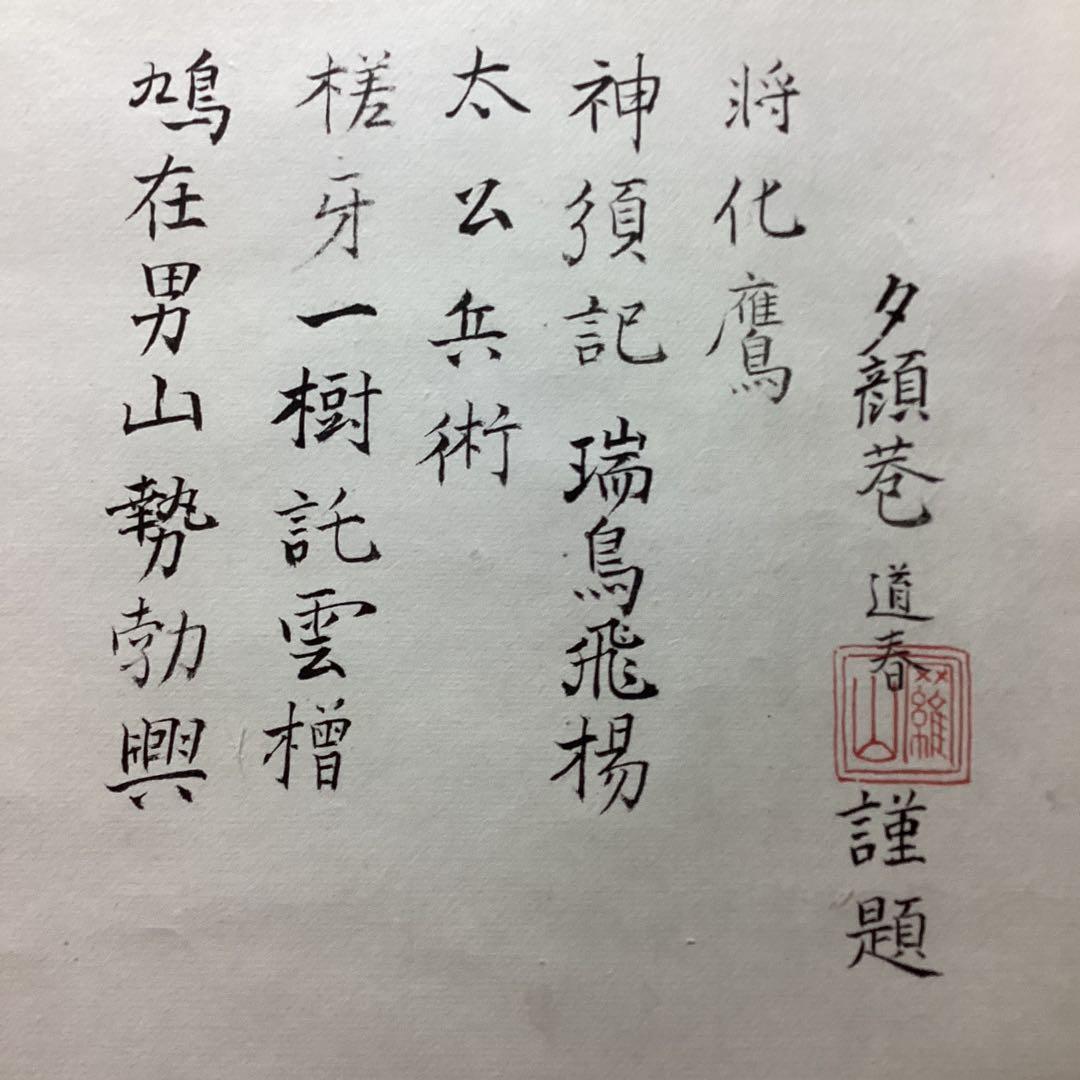 鳩在男山勢勃興
槎牙一樹託雲橧
太公兵術
神須記瑞鳥飛楊
將化鷹
夕顔巷道春謹題
羅山